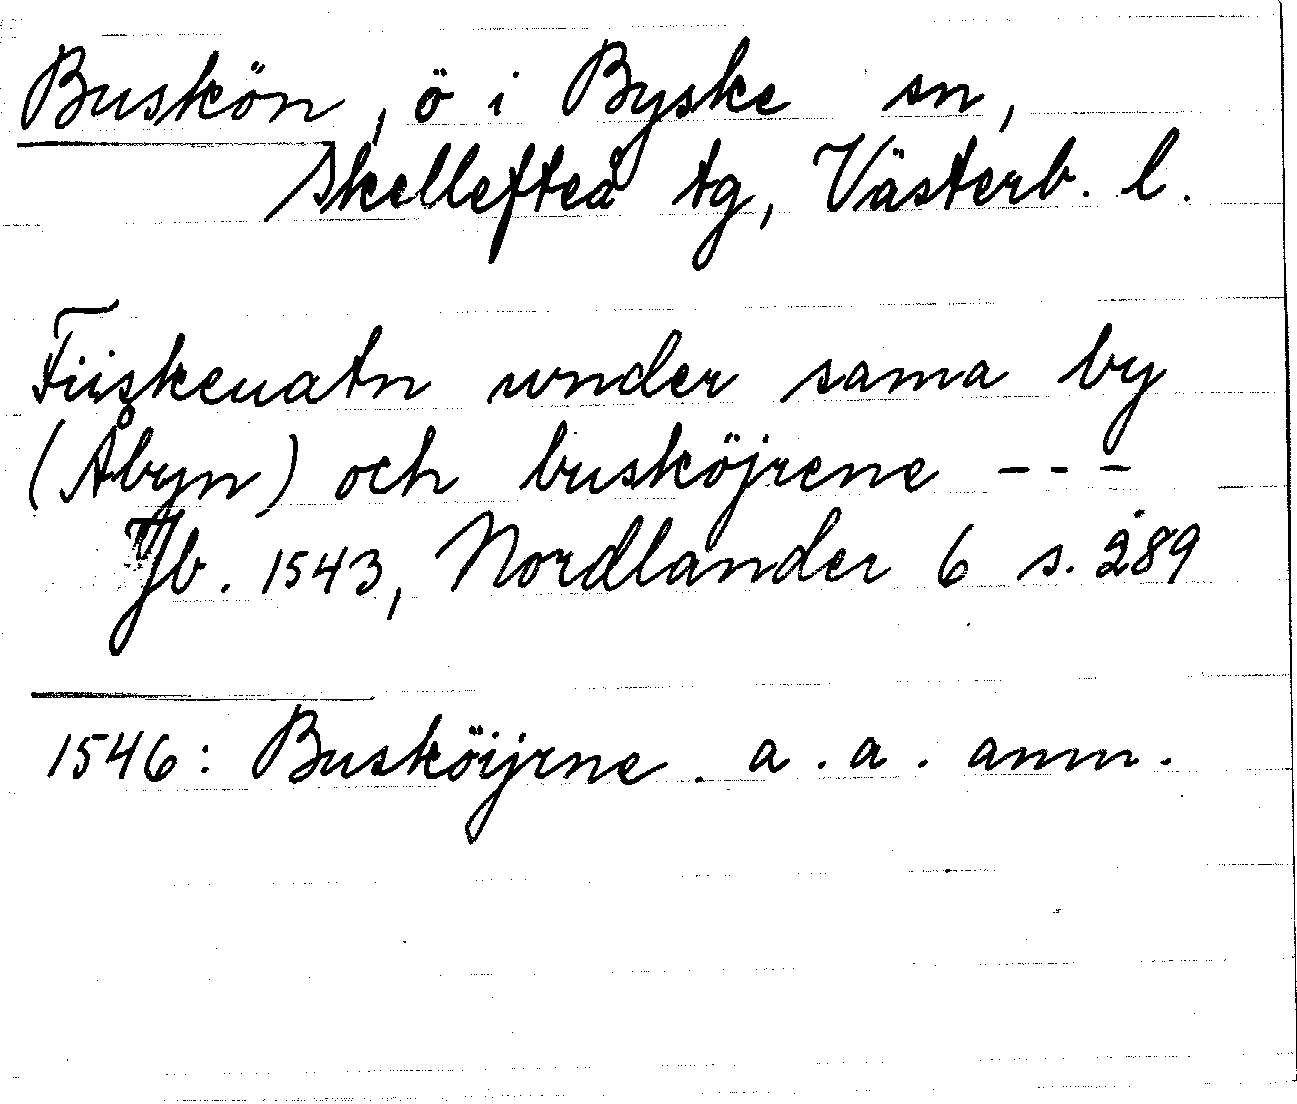 Buskön, ö i Byske sn,
Skellefteå tg, Västerb. l.
Fiiskeuatn wnder sama by
(Åbyn) och busköjrene - - -
Jb. 1543, Nordlander 6 s. 289
1546: Busköijrne. a. a. anm.